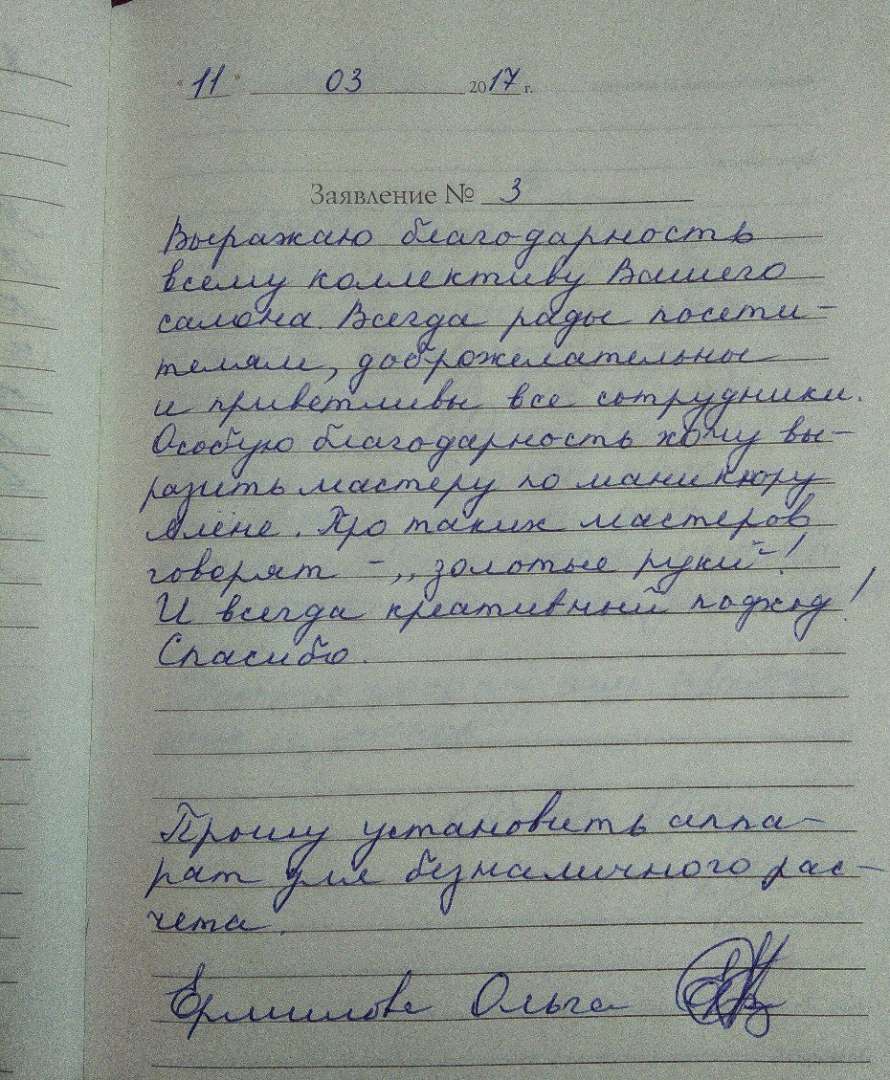 "11" 03 2017 г.
Заявление № 3
Выражаю благодарность
всему коллективу Вашего
салона. Всегда рады посети-
телям, доброжелательные
и приветливы все сотрудники.
Особую благодарность хочу вы-
разить мастеру по маникюру
Алёне. Про таких мастеров
говорят – „золотые руки“!
И всегда креативный подход!
Спасибо.
Прошу установить аппа-
рат для безналичного рас-
чета.
Ермилова Ольга